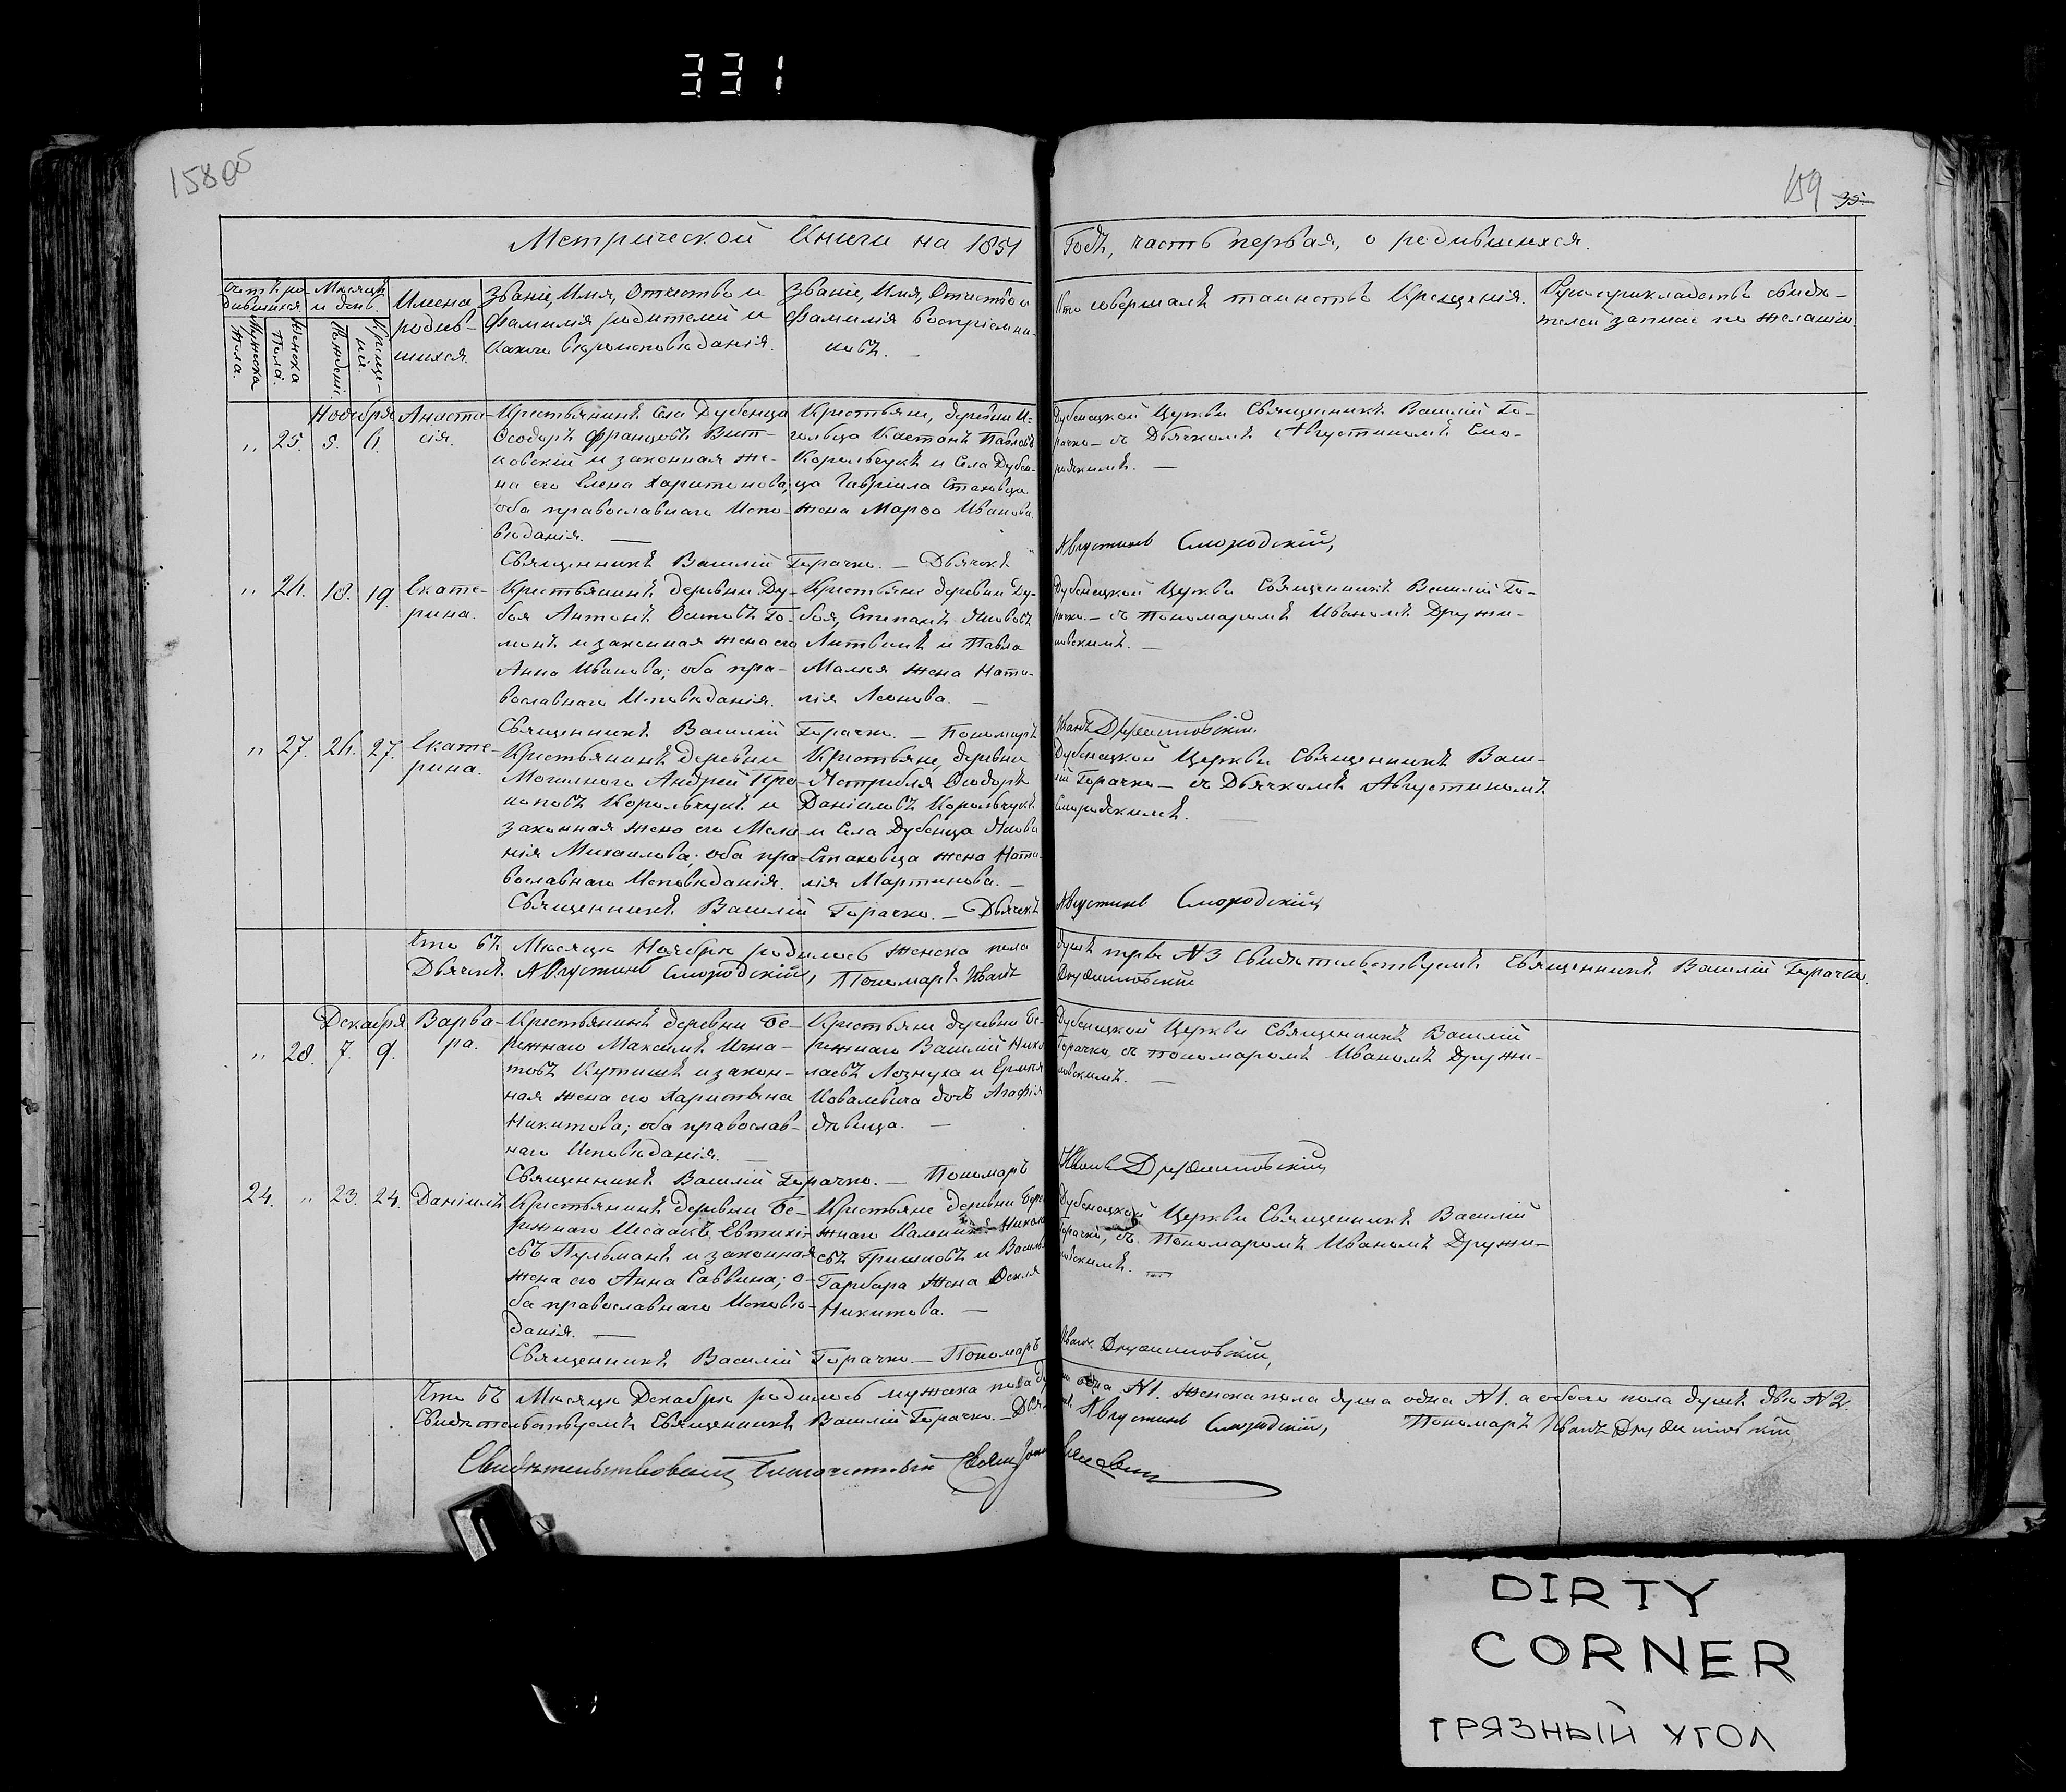 331
158об
159 35.
Метрической Книги на 1851 Годъ, часть первая, о родившихся.
Счетъ ро-
дившихся.
Мужеска
Пола.
Женска
Пола.
Мѣсяцъ
и день.
Рожденія.
Креще-
нія.
Имена
родив-
шихся.
Званіе, Имя, Отчество и
Фамилія родителей и
Какого вѣроисповѣданія.
Званіе, Имя, Отчество и
Фамилія воспріемни-
ковъ.
Кто совершалъ таинство Крещенія.
Рукоприкладство свидѣ-
телей записи по желанію.
Ноября
„ 25. 5. 6.
Анаста-
сія.
Крестьянинъ Села Дубенца
Ѳеодоръ Францовъ Вит-
ковскій и законная же-
на его Елена Харитонова;
оба православнаго Испо-
вѣданія.
Крестьяне, деревни
Павловъ
Корольчукъ и Села Дубен-
ца Гавріила Стаховца
жена Марѳа Иванова
Дубенецкой Церкви Священникъ Василій Го-
рачко – съ Дьячкомъ Августиномъ Смо-
родскимъ. —
Священникъ Василій Горачко. — Дьячекъ Августинъ Смородскій,
„ 26. 18. 19.
Екате-
рина.
Крестьянинъ деревни Ду-
боя Антонъ Осиповъ Го-
монъ и законная жена его
Анна Иванова; оба пра-
вославнаго Исповѣданія.
Крестьяне деревни Ду-
боя, Степанъ Яковъ
Литвинъ и Павла
Малея жена Ната-
лія Леонова. —
Дубенецкой Церкви Священникъ Василій Го-
рачко – съ Пономаремъ Иваномъ Дружи-
ловскимъ. —
Священникъ Василій Горачко. — Пономарь Иванъ Дружиловскій
„ 27. 26. 27.
Екате-
рина.
Крестьянинъ деревни
Могилного Андрей Про-
коповъ Корольчукъ и
законная жена его Мела-
нія Михаилова; оба пра-
вославнаго Исповѣданія.
Крестьяне, деревни
Ястребля Ѳеодоръ
Даніиловъ Корольчукъ
и Села Дубенца Якова
Стаховца жена Ната-
лія Мартинова. —
Дубенецкой Церкви Священникъ Васи-
лій Горачко – съ Дьячкомъ Августиномъ
Смородскимъ. —
Священникъ Василій Горачко. — Дьячекъ Августинъ Смородскій
Что въ Мѣсяцѣ Ноябрѣ родилось женска пола душъ три №3 Свидѣтельствуемъ Священникъ Василій Горачко.
Дьячекъ Августинъ Смородскій, Пономарь Иванъ Дружиловскій
Декабря
„ 28. 7. 9.
Варва-
ра.
Крестьянинъ деревни Бе-
режнаго Максимъ Игна-
товъ Купишъ и закон-
ная жена его Харитына
Никитова; оба православ-
наго Исповѣданія. —
Крестьяне деревни Бе-
режнаго Василій Нико-
лаевъ Лознуха и Ермила
Ковалевича дочь Агафія
дѣвица. —
Дубенецкой Церкви Священникъ Василій
Горачко, съ Пономаремъ Иваномъ Дружи-
ловскимъ. —
Священникъ Василій Горачко. — Пономарь Иванъ Дружиловскій
24. „ 23. 24.
Даніилъ
Крестьянинъ деревни Бе-
режнаго Исаакъ Евтихі-
евъ Пульманъ и законная
жена его Анна Саввина; о-
ба православнаго Исповѣ-
данія. —
Крестьяне деревни Бере-
жнаго Никола-
евъ Гришковъ и Василія
Гарбара жена Ѳекла
Никитова. —
Дубенецкой Церкви Священникъ Василій
Горачко, съ Пономаремъ Иваномъ Дружи-
ловскимъ. —
Священникъ Василій Горачко. — Пономарь Иванъ Дружиловскій,
Что въ Мѣсяцѣ Декабрѣ родилось мужска пола душа одна №1. женска пола душа одна №1. а обоего пола душъ двѣ №2.
Свидѣтельствуемъ Священникъ Василій Горачко. — Дьячекъ Августинъ Смородскій, Пономарь Иванъ Дружиловскій
Свидѣтельствовалъ Благочинный
DIRTY
CORNER
ГРЯЗНЫЙ УГОЛ